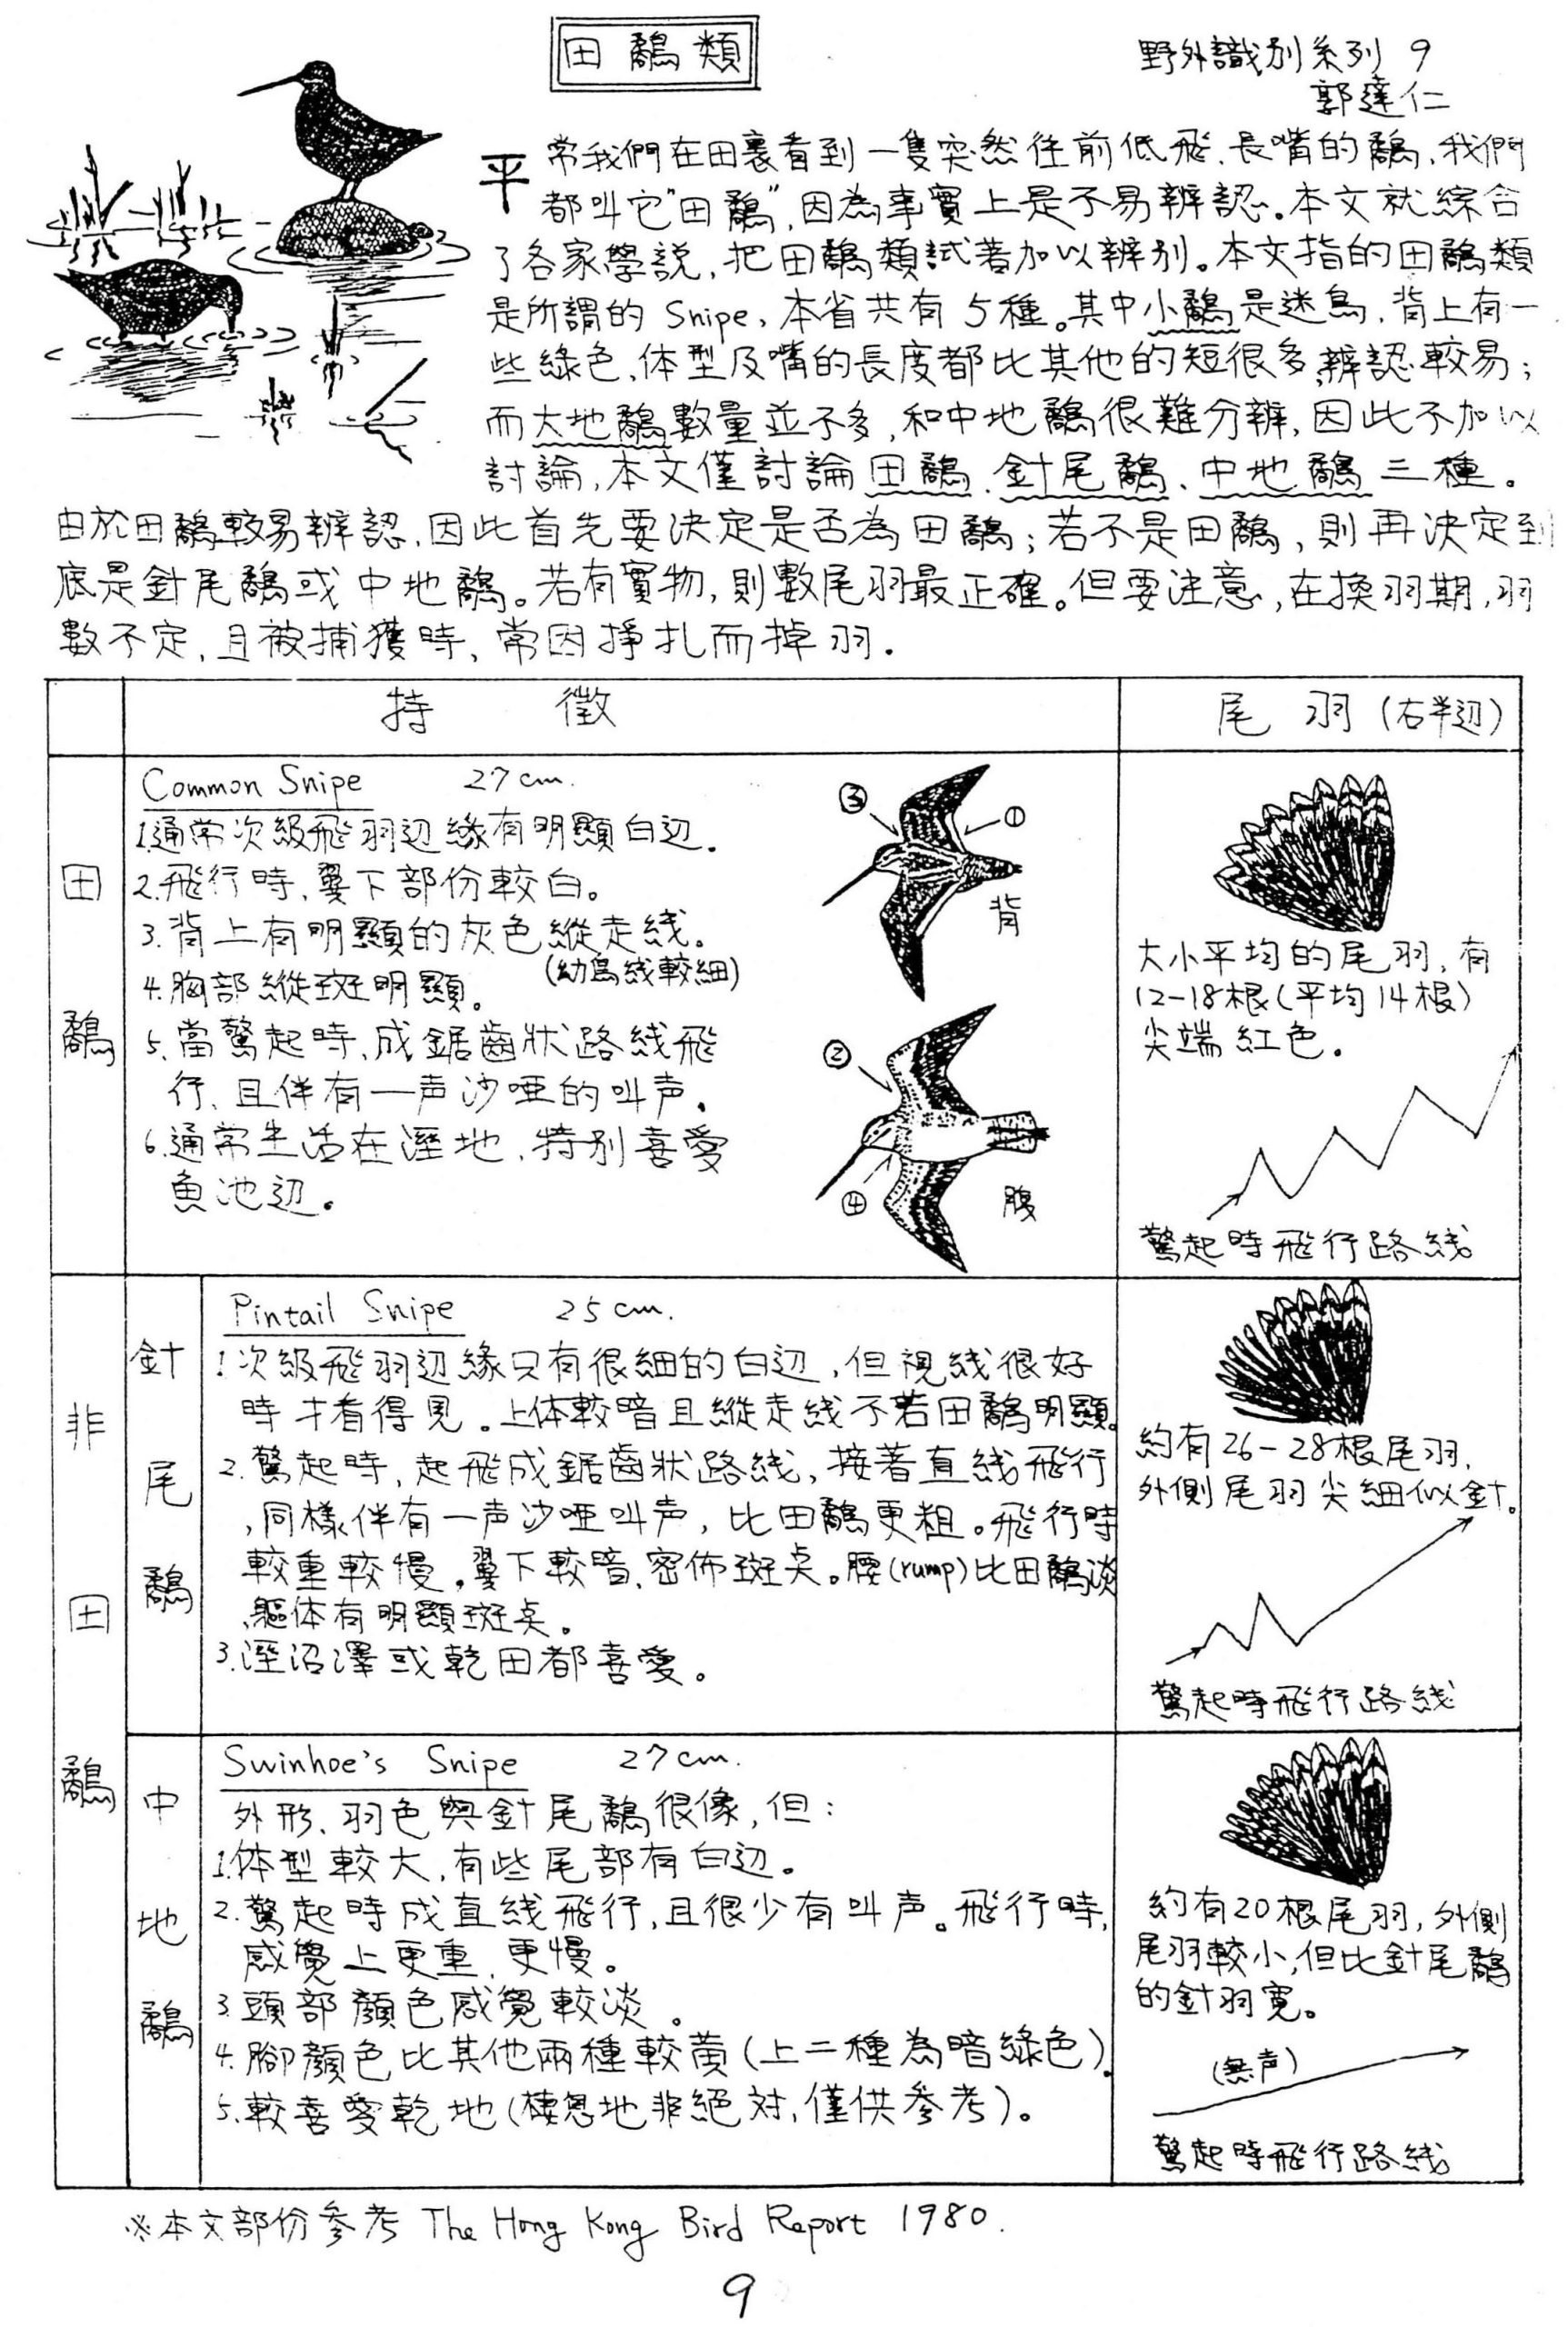 田鷸類
野外識別系列 9
郭達仁
平常我們在田裏看到一隻突然往前低飛、長嘴的鷸,我們
都叫它"田鷸",因為事實上是不易辨認。本文就綜合
了各家學說,把田鷸類試著加以辨別。本文指的田鷸類
是所謂的 Snipe,本省共有5種。其中小鷸是迷鳥,背上有一
些綠色,体型及嘴的長度都比其他的短很多,辨認較易;
而大地鷸數量並不多,和中地鷸很難分辨,因此不加以
討論,本文僅討論田鷸、針尾鷸、中地鷸三種。
由於田鷸較易辨認,因此首先要決定是否為田鷸;若不是田鷸,則再決定到
底是針尾鷸或中地鷸。若有實物,則數尾羽最正確。但要注意,在換羽期,羽
數不定,且被捕獲時,常因掙扎而掉羽.
持徵
尾羽(右半边)
田鷸
Common Snipe 27cm.
1.通常次級飛羽边緣有明顯白边.
2.飛行時,翼下部份較白。
3.背上有明顯的灰色縱走线。
(幼鳥线較細)
4.胸部縱斑明顯。
5.當驚起時,成鋸齒狀路线飛
行、且伴有一声沙啞的叫声.
6.通常生活在溼地,特別喜愛
魚池边。
③
①
背
②
④
腹
大小平均的尾羽,有
12-18根(平均14根)
尖端紅色.
驚起時飛行路线
非田鷸
針尾鷸
Pintail Snipe 25cm.
1.次級飛羽边緣只有很細的白边,但視线很好
時才看得見。上体較暗且縱走线不若田鷸明顯。
2.驚起時,起飛成鋸齒狀路线,接著直线飛行
,同樣伴有一声沙啞叫声,比田鷸更粗。飛行時
較重較慢。翼下較暗,密佈斑点。腰(rump)比田鷸淡
,軀体有明顯斑点。
3.溼沼澤或乾田都喜愛。
約有26-28根尾羽,
外側尾羽尖細似針。
驚起時飛行路线
中地鷸
Swinhoe's Snipe 27cm.
外形、羽色與針尾鷸很像,但:
1.体型較大,有些尾部有白边。
2.驚起時成直线飛行,且很少有叫声。飛行時,
感覺上更重,更慢。
3.頭部顏色感覺較淡。
4.腳顏色比其他兩種較黃(上二種為暗綠色).
5.較喜愛乾地(棲息地非絕对,僅供參考)。
約有20根尾羽,外側
尾羽較小,但比針尾鷸
的針羽寬。
(無声)
驚起時飛行路线
※本文部份參考 The Hong Kong Bird Report 1980.
9